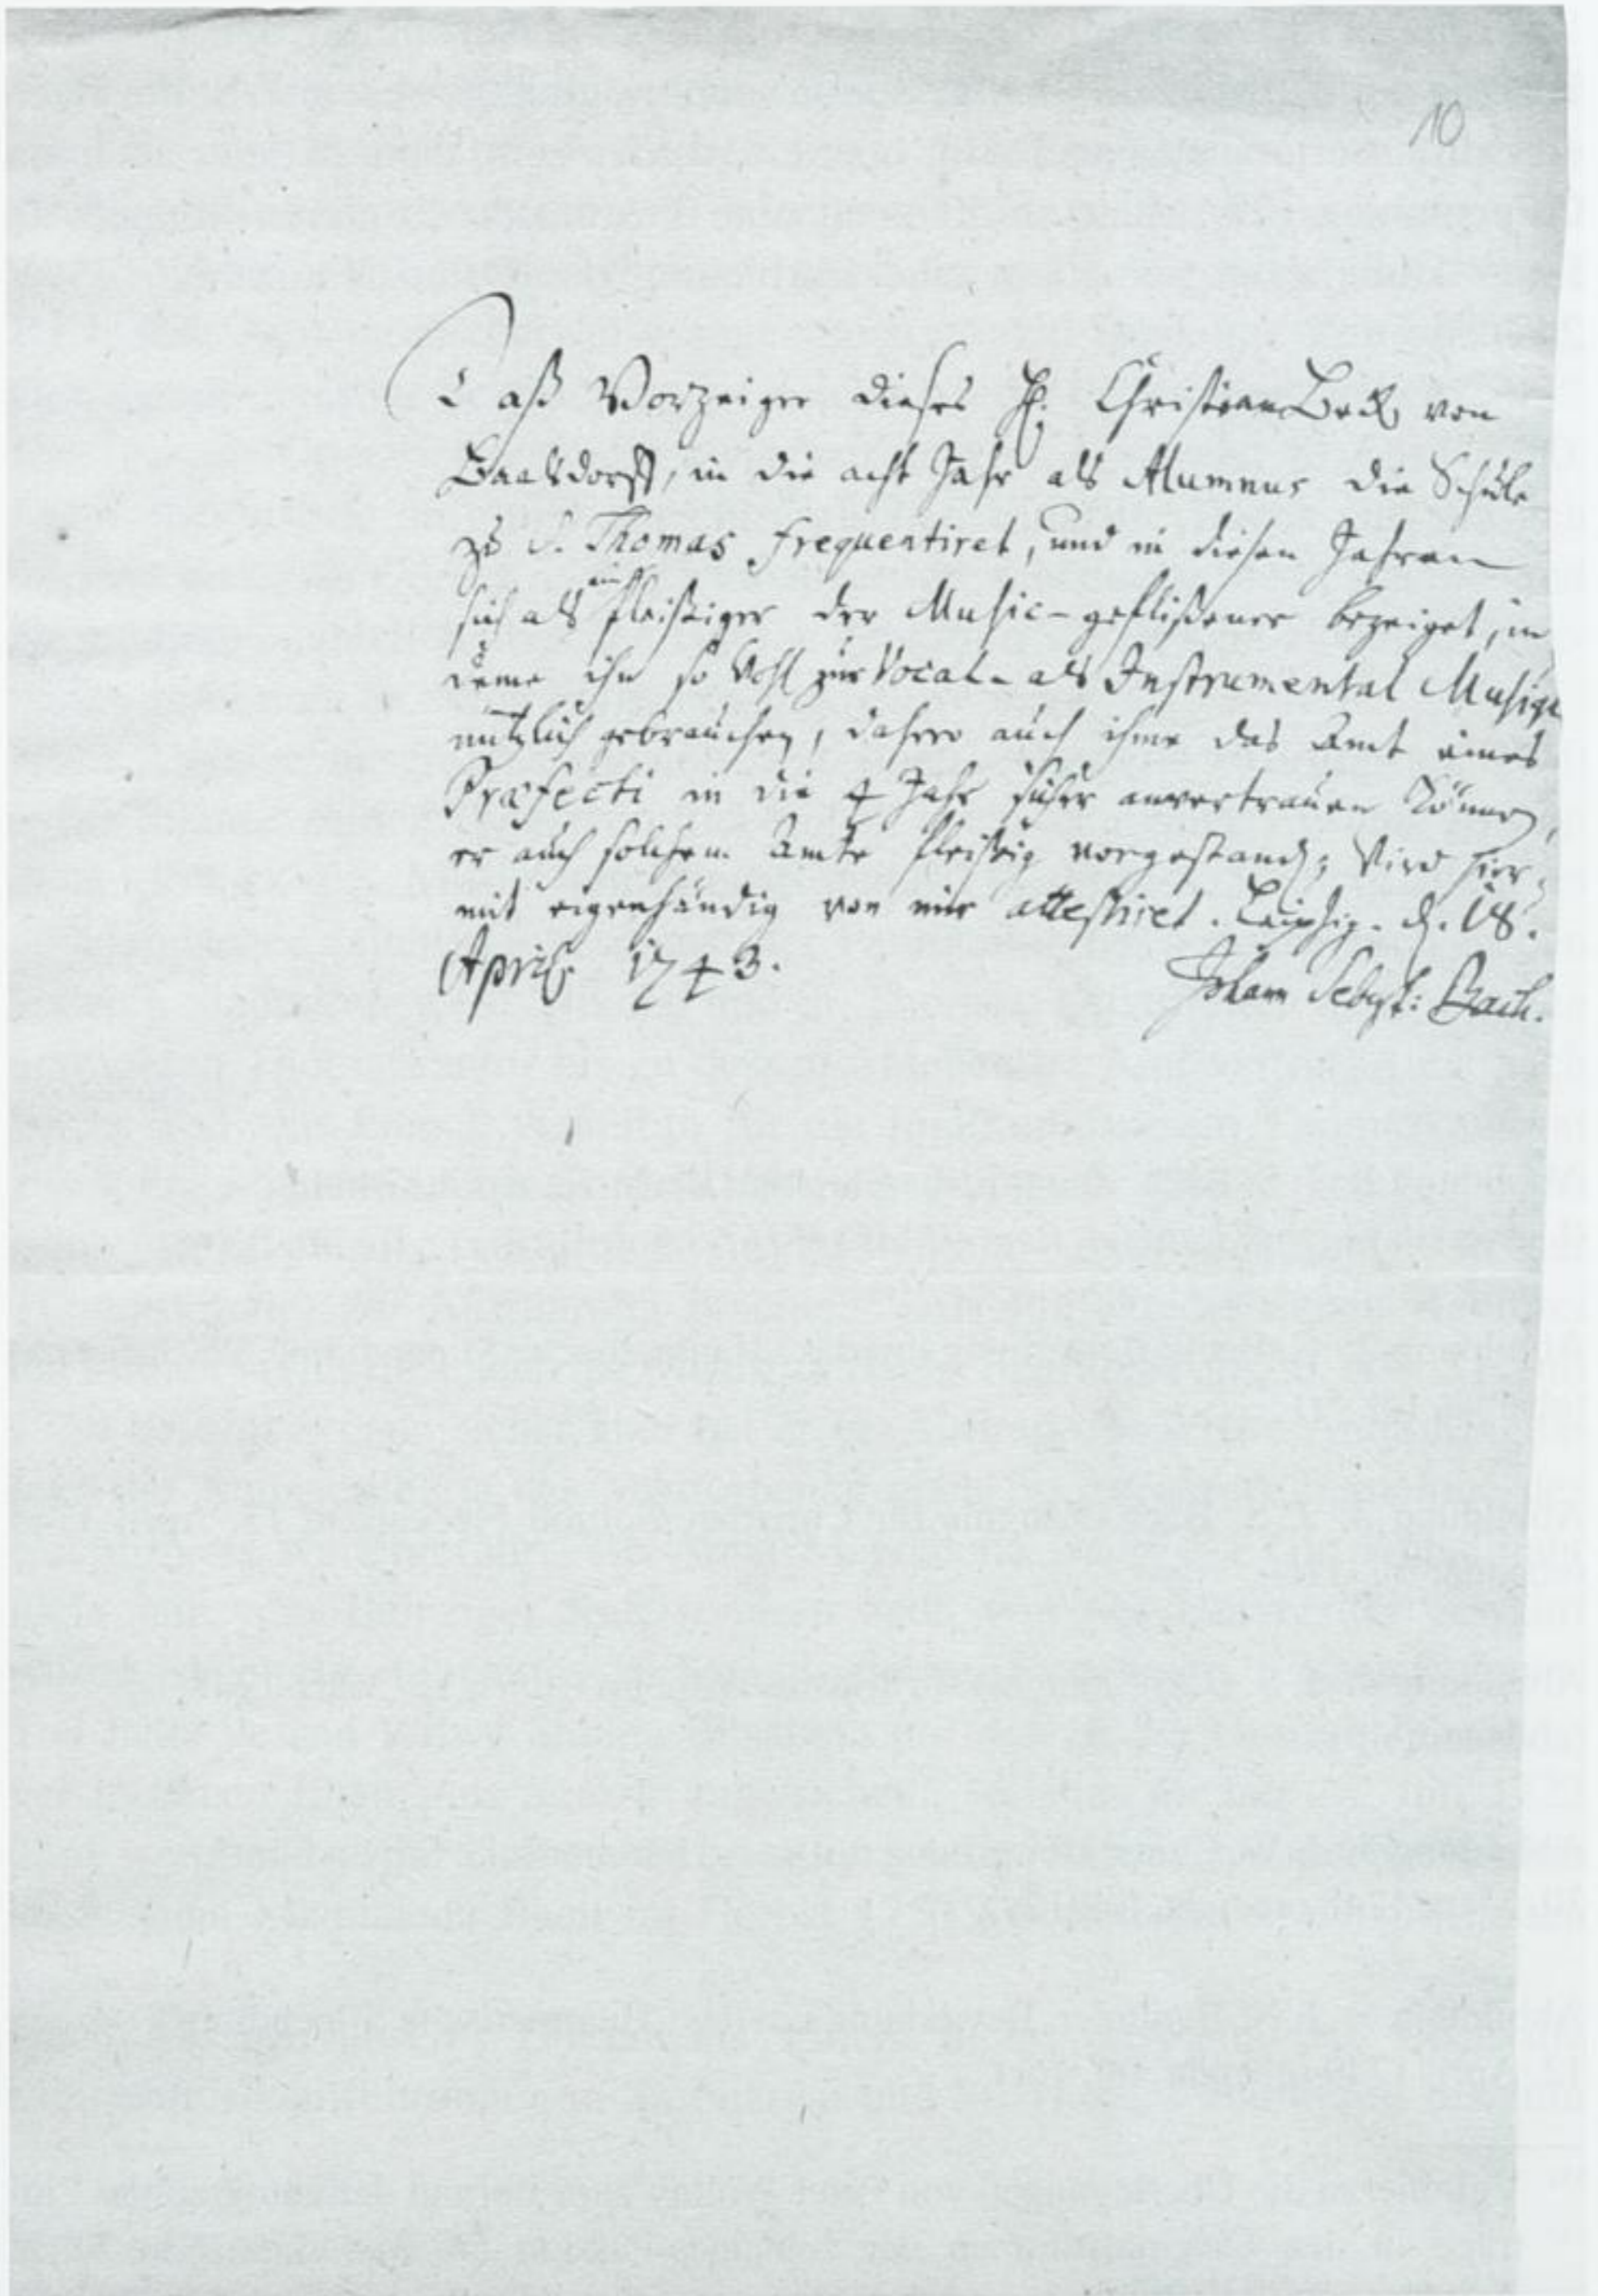 10
Daß Vorzeiger dieses H. Christian Beck von
Baalsdorff, in die acht Jahr als Alumnus die Schule
zu S. Thomas frequentiret, und in diesen Jahren
sich als ein fleißiger der Music-geflißener bezeiget, in
deme ihn so wohl zur Vocal- als Instrumental Musique
nützlich gebrauchen, dahero auch ihme das Amt eines
Præfecti in die 4 Jahr sicher anvertrauen können,
er auch solchem Amte fleißig vorgestanden; wird hier-
mit eigenhändig von mir attestiret. Leipzig. d. 18.
April. 1743.
Joham Sebast: Bach.